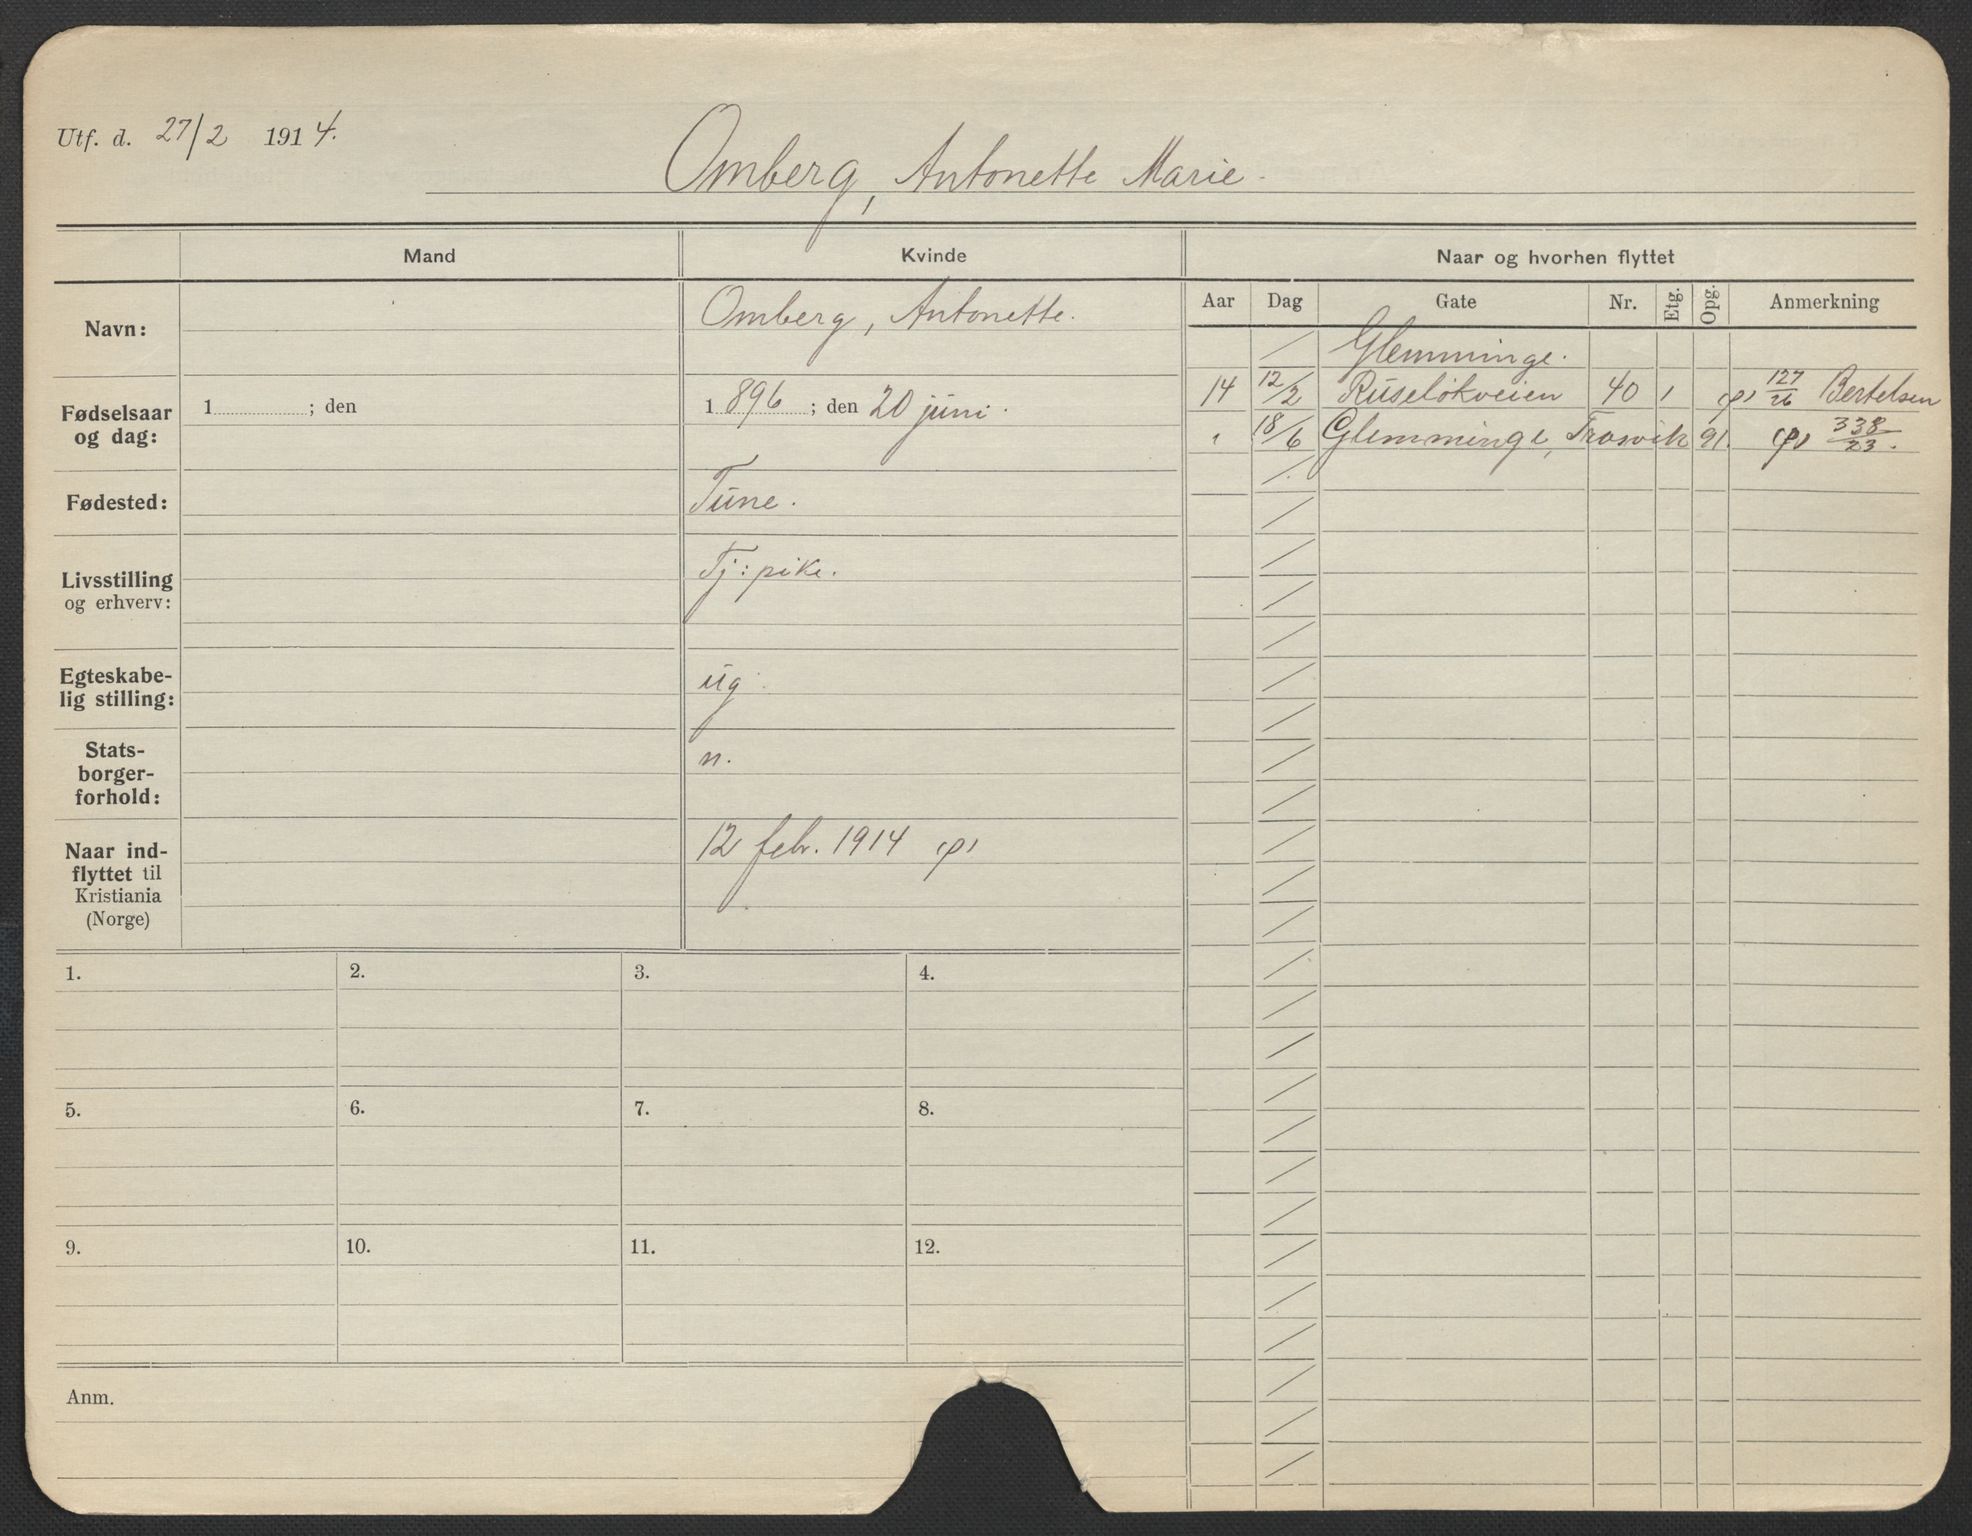 Utf. d. 27/2 1914.
Omberg, Antonette Marie.
Mand Kvinde Naar og hvorhen flyttet
Aar Dag Gate Nr. Etg. Opg. Anmerkning
Navn: Omberg, Antonette.
Glemminge.
14 12/2 Ruseløkveien 40 1 127/26 Bertelsen
18/6 Glemminge, Trosvik 91. 338/23.
Fødselsaar og dag: 1 ; den 1896 ; den 20 juni.
Fødested: Tune.
Livsstilling og erhverv: Tj: pike.
Egteskabe-
lig stilling: ug.
Stats-
borger-
forhold: n.
Naar ind-
flyttet til
Kristiania
(Norge) 12 febr. 1914
1. 2. 3. 4.
5. 6. 7. 8.
9. 10. 11. 12.
Anm.